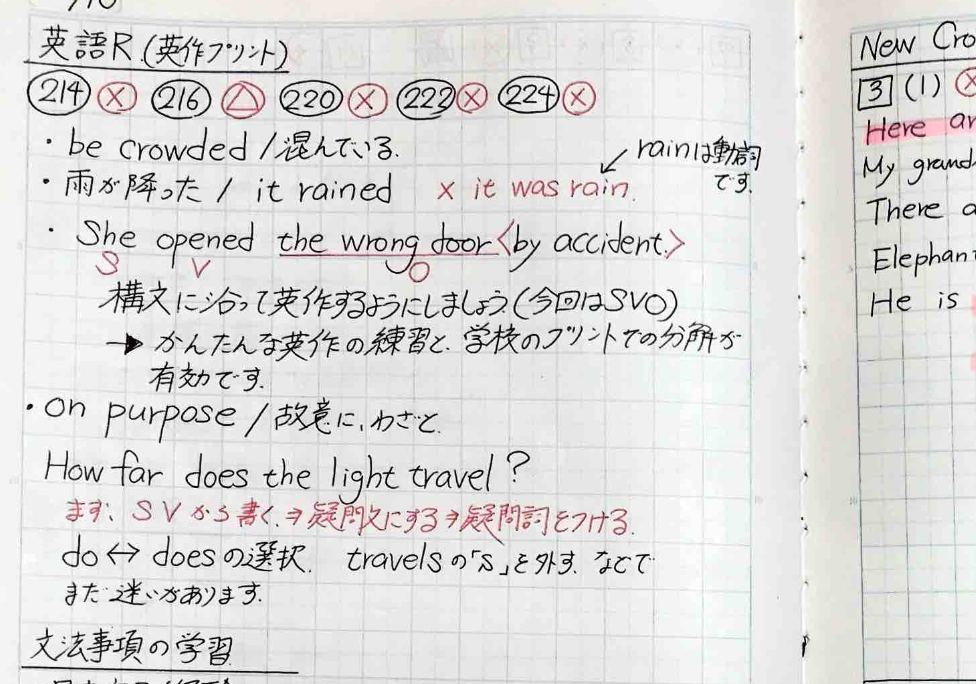 英語R.(英作プリント)
214 × 216 △ 220 × 222 × 224 ×
・be crowded / 混んでいる.
rainは動詞
です.
・雨が降った / it rained × it was rain.
・She opened the wrong door <by accident.>
S V O
構文に沿って英作するようにしましょう.(今回はSVO)
→ かんたんな英作の練習と、学校のプリントでの分解が
有効です.
・on purpose / 故意に、わざと.
How far does the light travel?
まず、SVから書く.⇒疑問文にする⇒疑問詞をつける.
do ↔ doesの選択. travelsの「s」を外す. などで
まだ迷いがあります.
文法事項の学習
New Cro
3 (1) ×
Here ar
My grand
There a
Elephan
He is